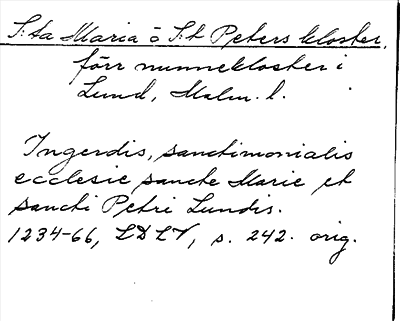 S:ta Maria o S:t Peters kloster,
förr nunnekloster i
Lund, Malm. l.
Ingerdis, sanctimonialis
ecclesie sancte Marie et
sancti Petri Lundis.
1234-66, LDLV, s. 242. orig.